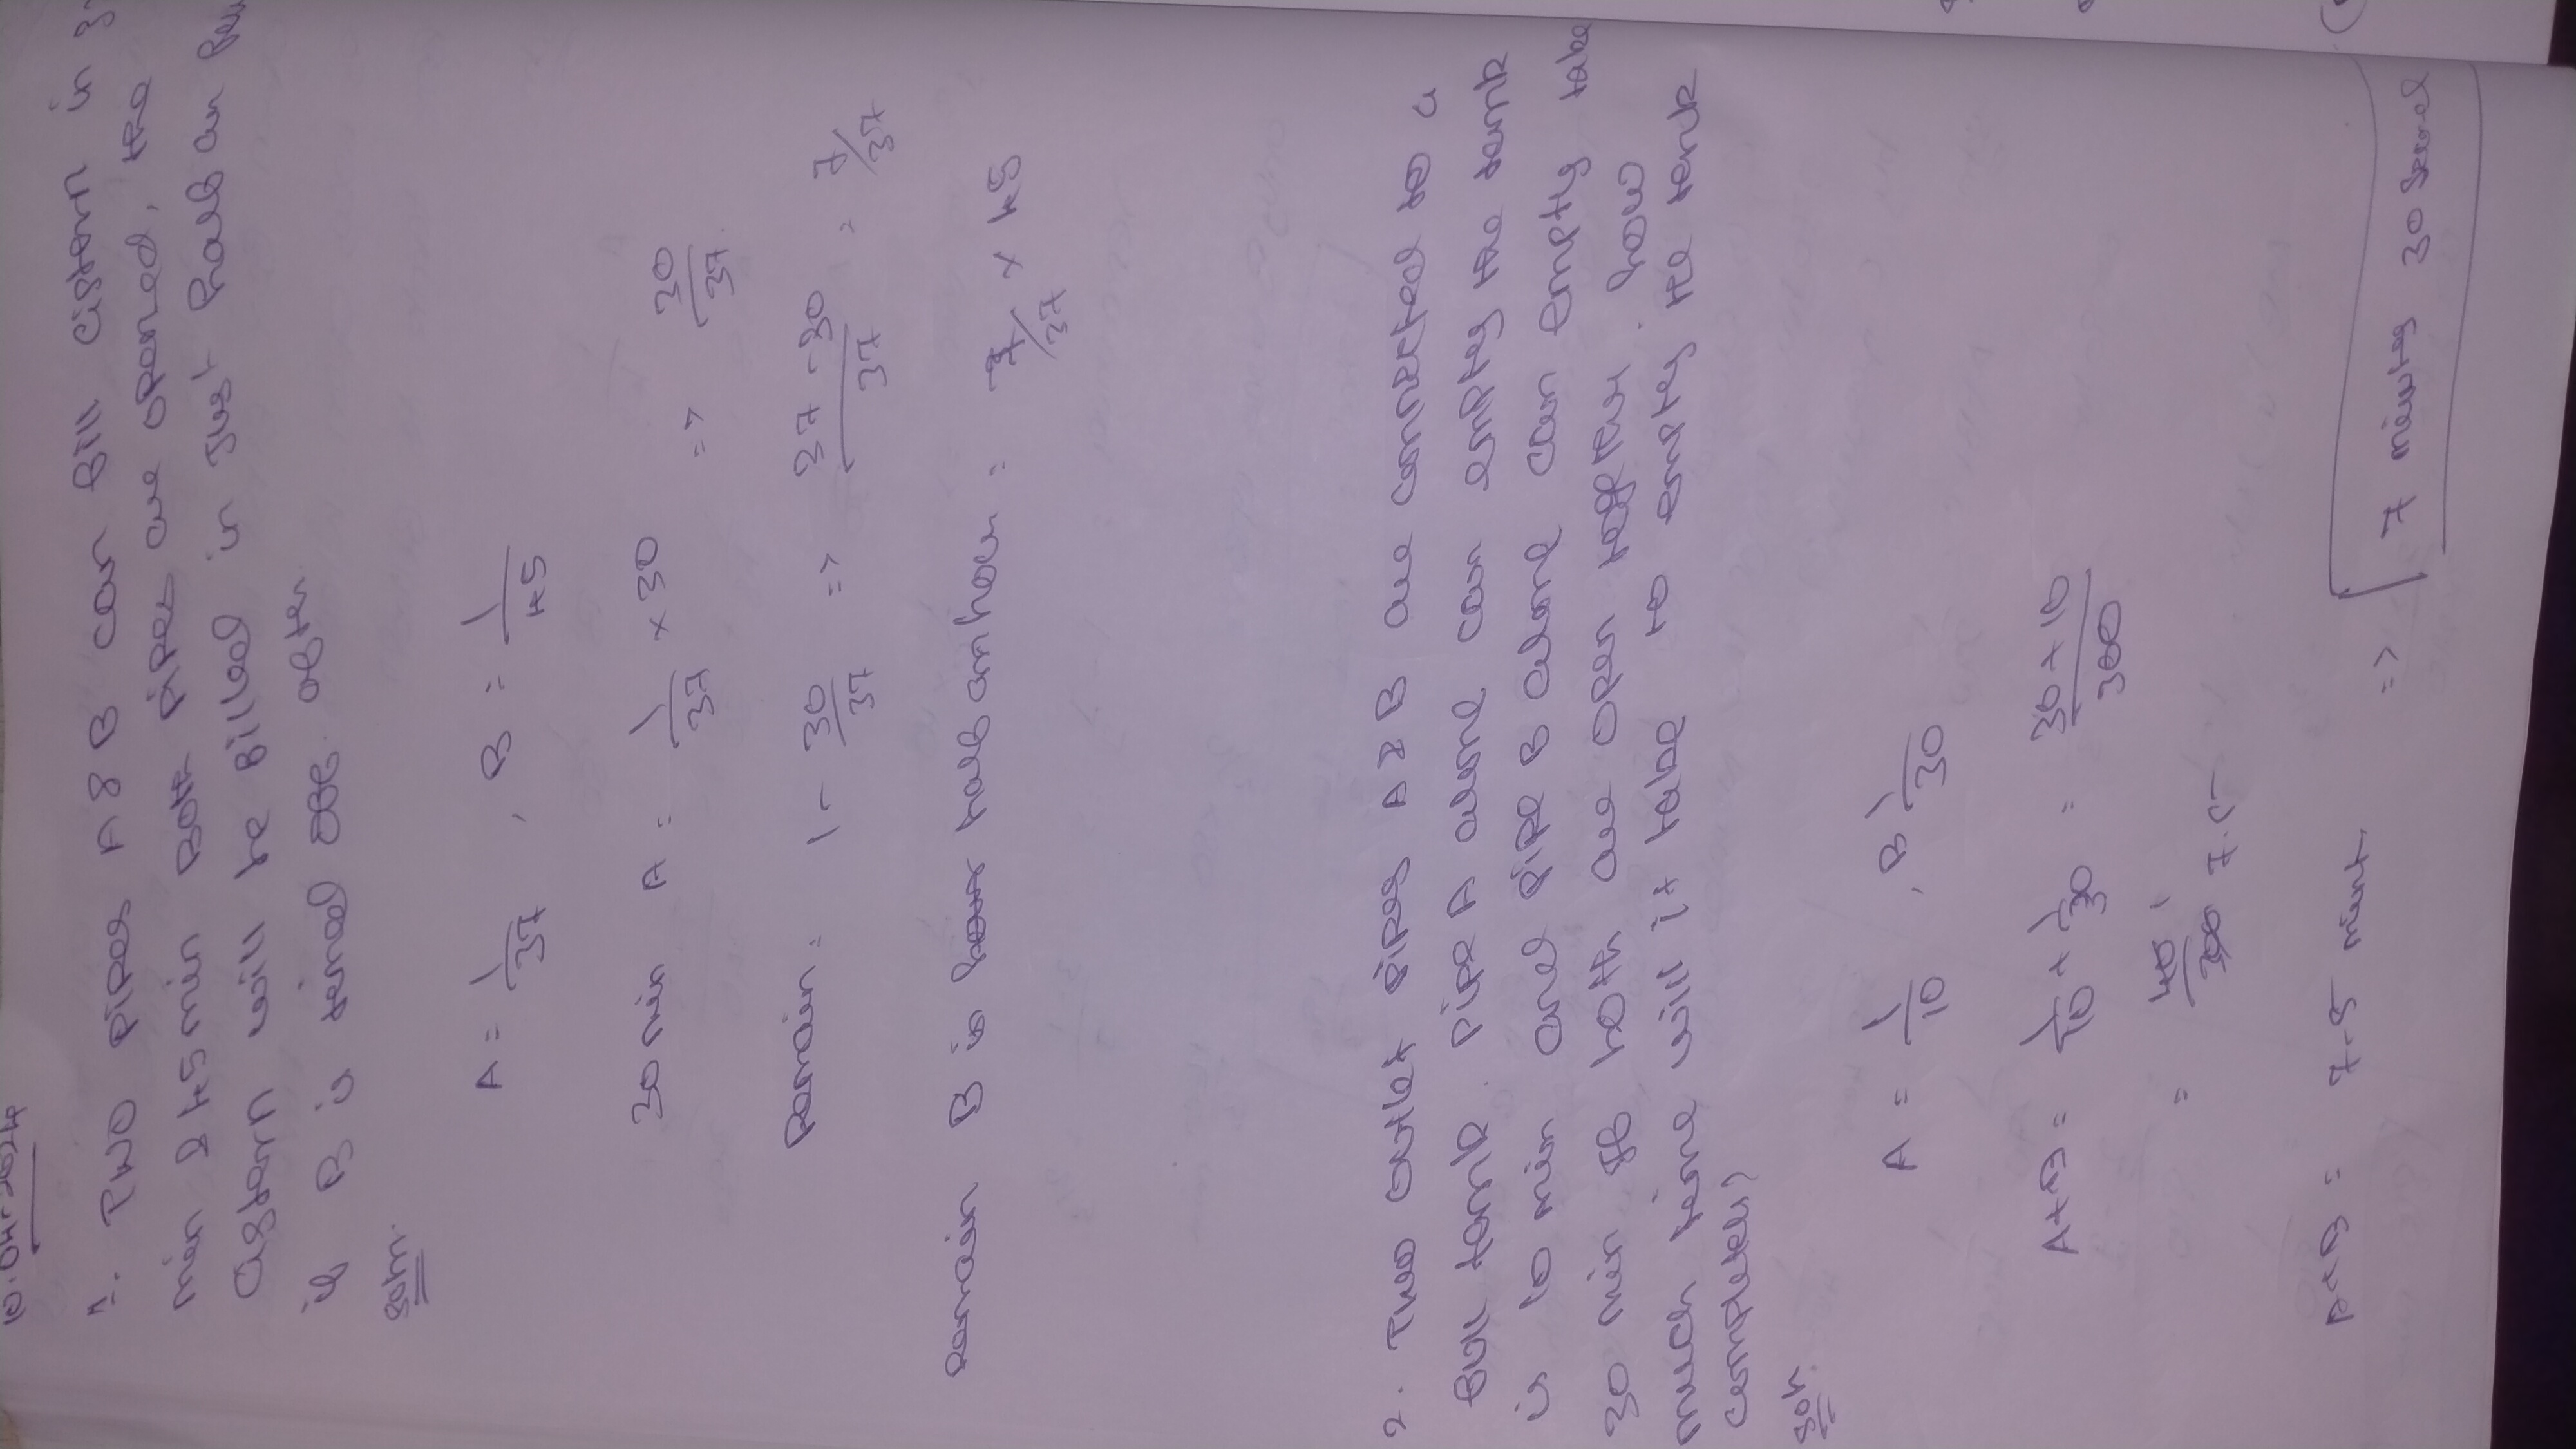 10.04-2024
1. Two pipes A & B can fill cistern in
min & 45 min Both pipes are opened, the
cistern will be filled in Just half an
if B is turned off after
soln.
A = 1/37 , B = 1/45
30 min A = 1/37 × 30 => 30/37
Remain = 1 - 30/37 => 37-30/37 = 7/37
Remain B is half an hour = 7/37 × 45
2. Two outlet pipes A & B are connected to a
full tank. Pipe A alone can empty the tank
is 10 min and pipe B alone can empty take
30 min If both are open together. how
much time will it take to empty the tank
completely?
soln.
A = 1/10 , B 1/30
A+B = 1/10 + 1/30 = 30+10/300
= 40/300 1/7.5
A+B = 7.5 mint => 7 minutes 30 Second